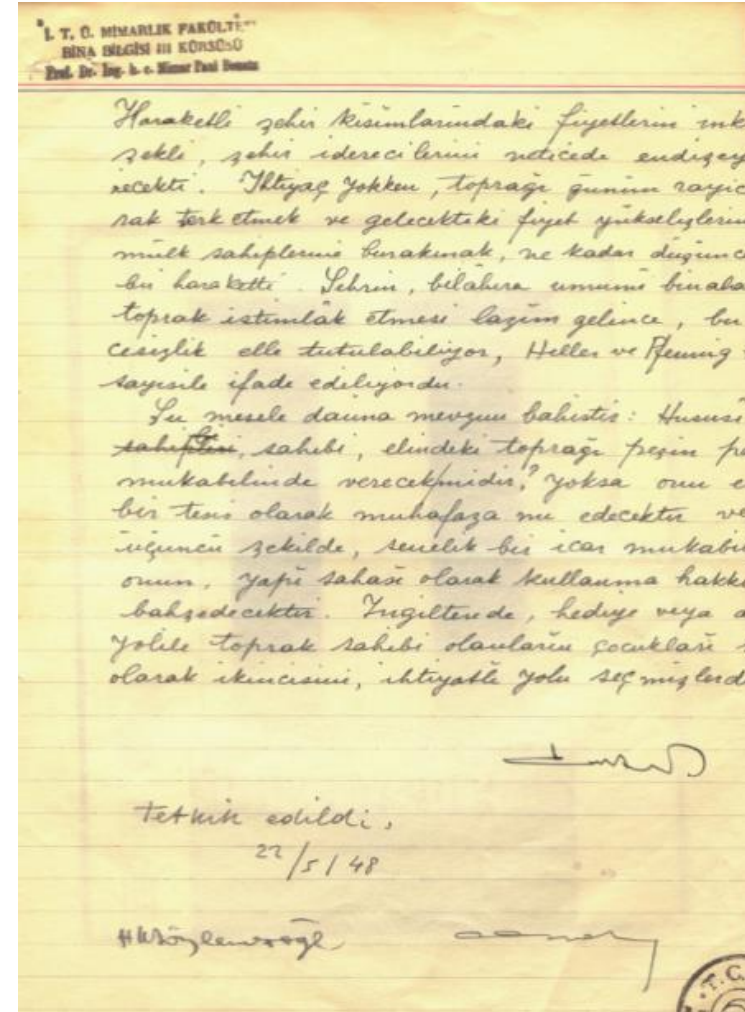 İ. T. Ü. MİMARLIK FAKÜLTE
BİNA BİLGİSİ III KÜRSÜSÜ
Prof. Dr. Ing. h. c. Mimar Paul Bonatz
Haraketli şehir kısımlarındaki fiyetlerin ink
şekli, şehir iderecilerini neticede endişey
recekti. İhtiyaç yokken, toprağı günün rayic
rak terk etmek ve gelecekteki fiyet yükselişlerin
mülk sahiplerine bırakmak, ne kadar düşünce
bir haraketti. Şehrin, bilâhıra umumî binala
toprak istimlâk etmesi lazım gelince, bu
cesizlik elle tutulabiliyor, Heller ve Pfennig
sayısile ifade ediliyordu.
Şu mesele daima mevzuu bahistir: Hususi
sahipleri, sahibi, elindeki toprağı peşin pe
mukabilinde verecekmidir? yoksa onu e
bir tesis olarak muhafaza mı edecektir ve
üçüncü şekilde, senelik bir icar mukabi
onun, yapı sahası olarak kullanma hakkı
bahşedecektir. İngilterede, hediye veya a
yolile toprak sahibi olanların çocukları
olarak ikincisini, ihtiyatlı yolu seçmişlerd
Tetkik edildi,
22/5/48
T.C.